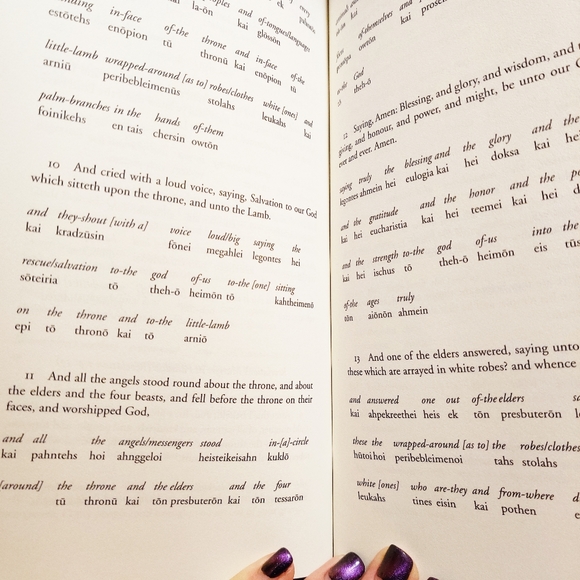 in-face of-the throne and in-face of-the
estōtehs enōpion tū thronū kai enōpion tū
little-lamb wrapped-around [as to] robes/clothes white [ones] and
arniū peribebleimenūs stolahs leukahs kai
palm-branches in the hands of-them
foinikehs en tais chersin owtōn
10 And cried with a loud voice, saying, Salvation to our God
which sitteth upon the throne, and unto the Lamb.
and they-shout [with a] voice loud/big saying the
kai kradzūsin fōnei megahlei legontes hei
rescue/salvation to-the god of-us to-the [one] sitting
sōteiria tō theh-ō heimōn tō kahtheimenō
on the throne and to-the little-lamb
epi tō thronō kai tō arniō
11 And all the angels stood round about the throne, and about
the elders and the four beasts, and fell before the throne on their
faces, and worshipped God,
and all the angels/messengers stood in-[a]-circle
kai pahntehs hoi ahnggeloi heisteikeisahn kuklō
[around] the throne and the elders and the four
tū thronū kai tōn presbuterōn kai tōn tessarōn
of-themselves and
owtōn kai
God
theh-ō
12 Saying, Amen: Blessing, and glory, and wisdom, and
giving, and honour, and power, and might, be unto our
ever and ever. Amen.
saying truly the blessing and the glory and the
legontes ahmein hei eulogia kai hei doksa kai
and the gratitude and the honor and the
kai hei eucharistia kai hei teemei kai hei
and the strength to-the god of-us into the
kai hei ischus tō theh-ō heimōn eis tūs
of-the ages truly
tōn aiōnōn ahmein
13 And one of the elders answered, saying unto
these which are arrayed in white robes? and whence
and answered one out of-the elders
kai ahpekreethei heis ek tōn presbuterōn
these the wrapped-around [as to] the robes/clothes
hūtoi hoi peribebleimenoi tahs stolahs
white [ones] who are-they and from-where
leukahs tines eisin kai pothen